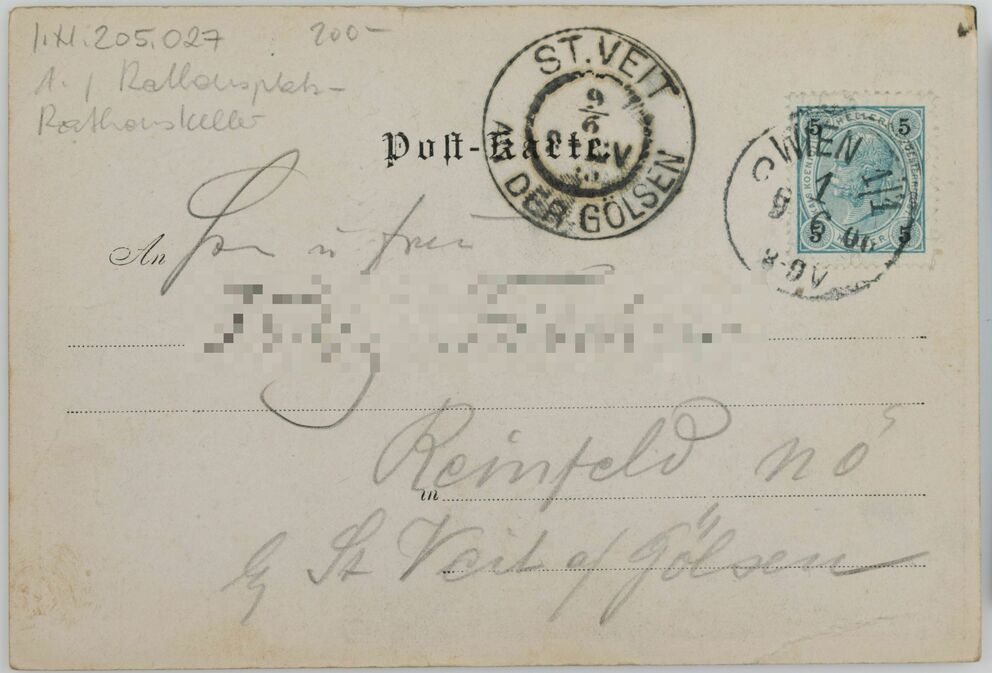 I.N. 205.027 200-
1. / Rathausplatz-
Rathauskeller
Post-Karte.
ST. VEIT
A. DER GÖLSEN
9/6
WIEN 1/1
6 00
8-9V
5 5
5 5
HELLER
An
in Reinfeld NÖ
St Veit a/ Gölsen